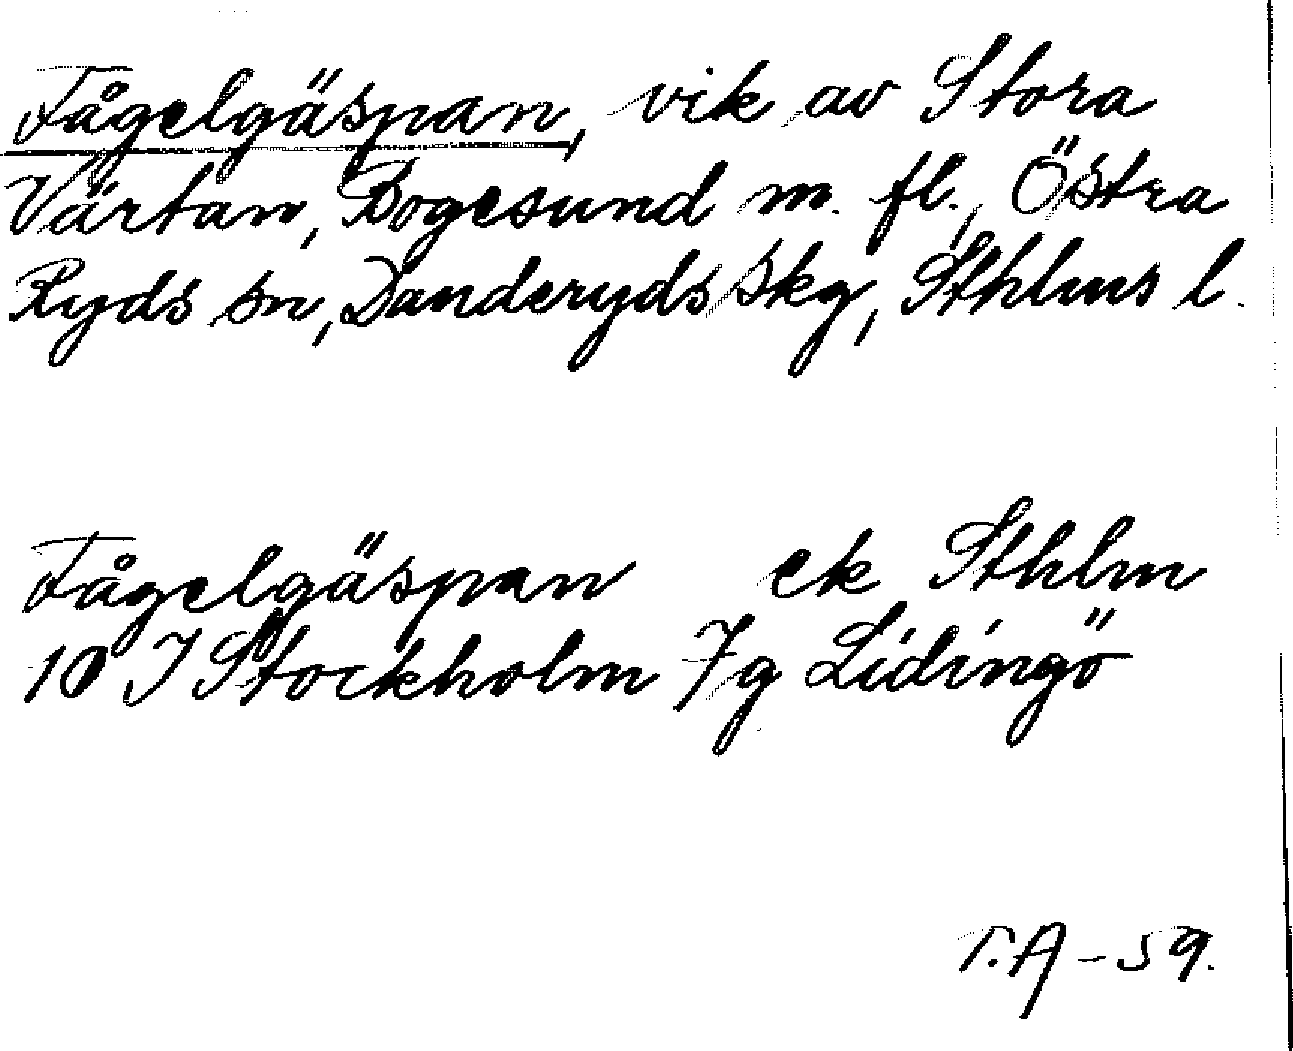 Fågelgäspan, vik av Stora
Värtan, Bogesund m. fl., Östra
Ryds sn, Danderyds skg, Sthlms l.
Fågelgäspan ek Sthlm
10 I Stockholm 7g Lidingö
T.A - 59.